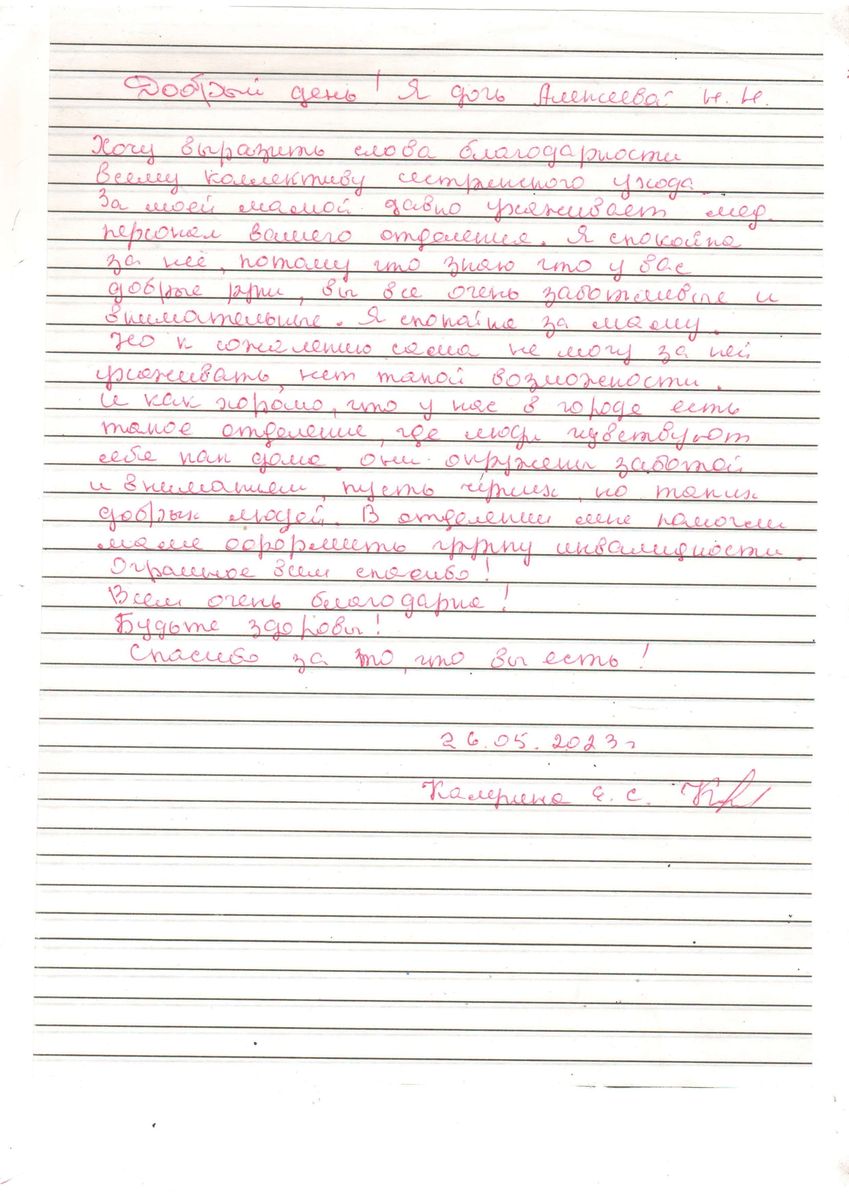 Добрый день! Я дочь Алексеевой Н. Н.
Хочу выразить слова благодарности
всему коллективу сестринского ухода.
За моей мамой давно ухаживает мед.
персонал вашего отделения. Я спокойна
за неё, потому что знаю что у вас
добрые руки, вы все очень заботливые и
внимательные. Я спокойна за маму.
Но к сожалению сама не могу за ней
ухаживать, нет такой возможности.
И как хорошо, что у нас в городе есть
такое отделение, где люди чувствуют
себя как дома. они окружены заботой
и вниманием, пусть чужих, но таких
добрых людей. В отделении мне помогли
маме оформить группу инвалидности.
Огромное Всем спасибо!
Всем очень благодарна!
Будьте здоровы!
Спасибо за то, что вы есть!
26.05.2023г
Е. С.